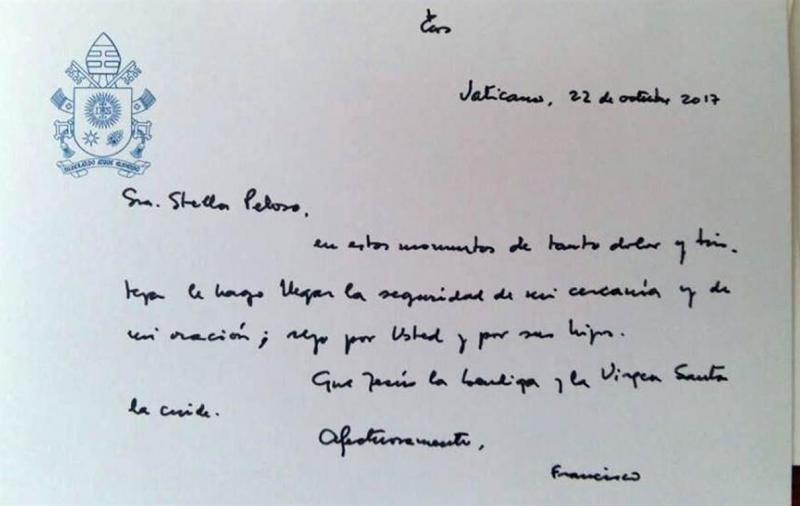 Vaticano, 22 de octubre 2017
IHS
MISERANDO ATQUE ELIGENDO
Sra. Stella Peloso,
en estos momentos de tanto dolor y tris-
teza le hago llegar la seguridad de mi cercanía y de
mi oración; rezo por Usted y por sus hijos.
Que Jesús la bendiga y la Virgen Santa
la cuide.
Afectuosamente,
Francisco